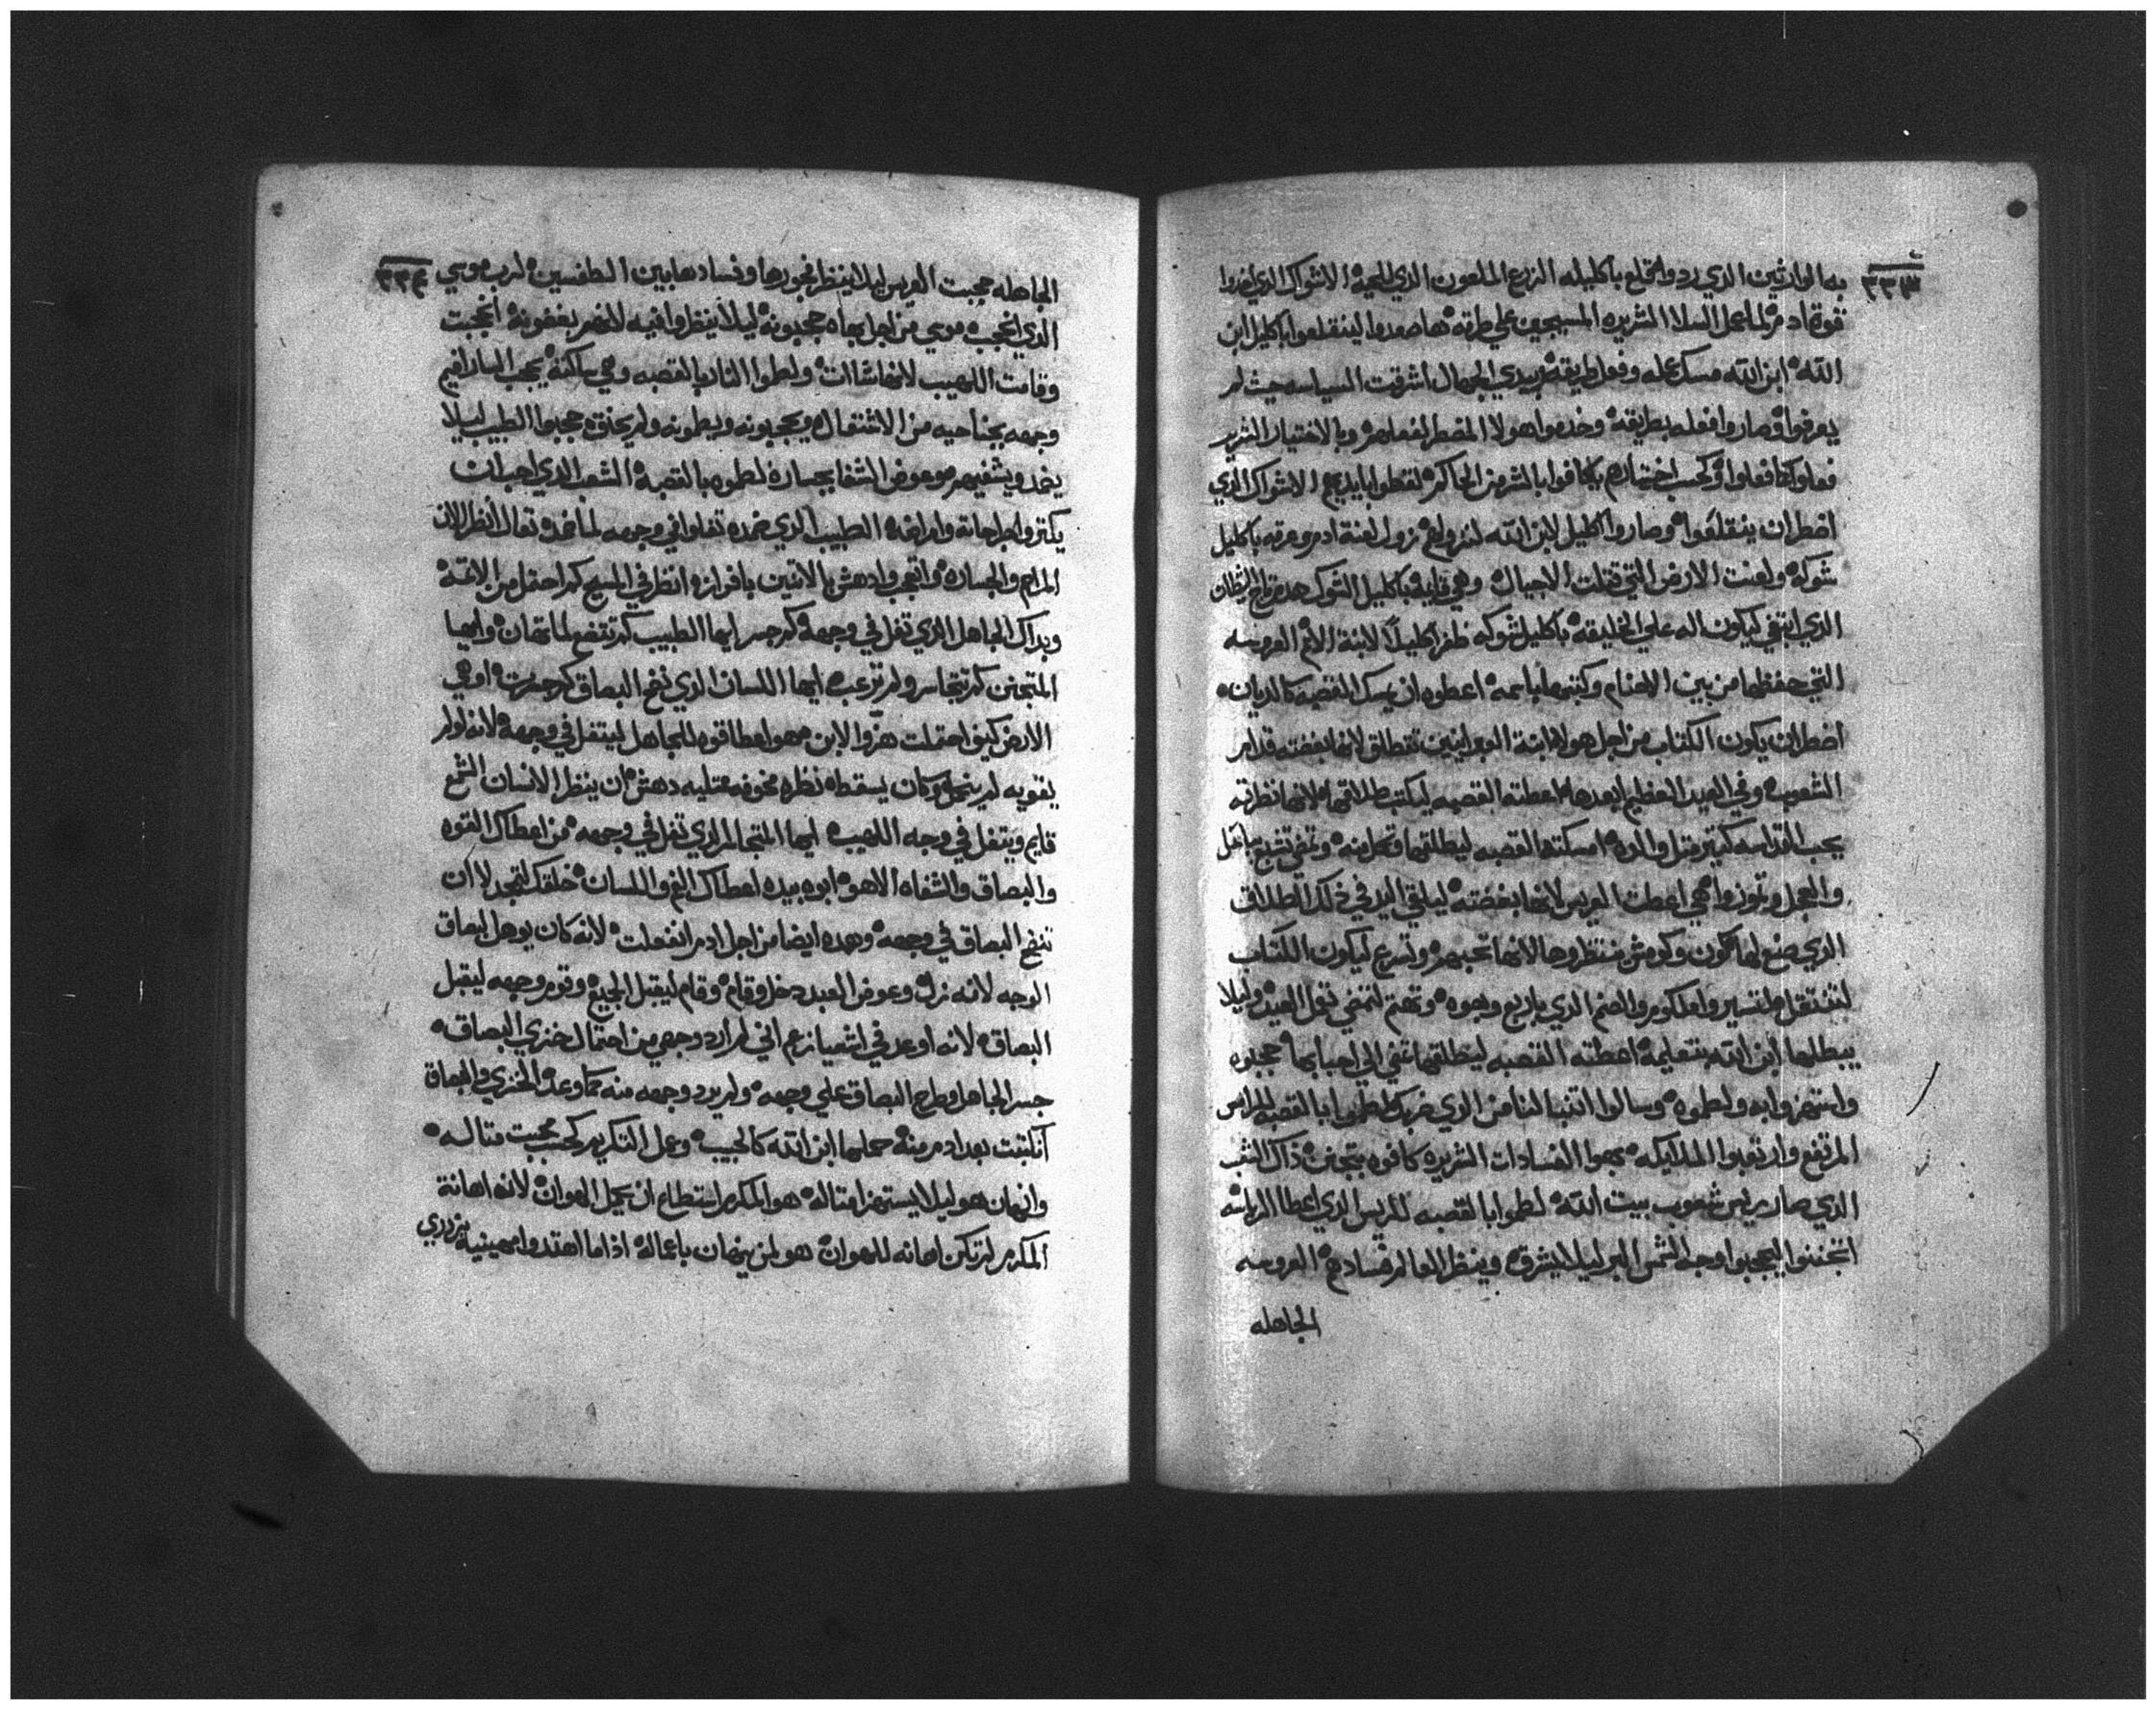 ٣٣٣
به الوارثين الذي ردو اقتلع باكليله الزرع الملعون الذي للحية الاشواك الذي
قوة ادم لما عمل السلا الشريره المسيجين علي طرقه هاصعدوا لينقلعوا باكليل ابن
الله ابن الله مسك عمله وفعل طريقه بيدي الجهال اشرقت السياسه حيث لم
يعرفوا وصاروا فعله بطريقه وخدموا هولا المضطر لفعلهم وبالاختيار الشرير
فعلوا كما فعلوا وكحسب اختيارهم يكافوا بالشر من الحاكم لقطوا بايديهم الاشواك الذي
اضطر ان ينقلعوا وصاروا اكليل لابن الله لنزوله نزول لعنة ادم وعرقه باكليل
شوكه ولعنت الارض التي قتلت الاجيال وهي باكليل الشوك هدم تاج الشيطان
الذي ابتغي ليكون اله علي الخليقه باكليل شوكه ظفر اكليلا لابنة الامم العروسه
التي حفظها من بين الاصنام وكتبها باسمه اعطوه ان يمسك القصبه كالديان
اضطر ان يكون الكتاب من اجل هولا ابنة العبرانيين تنطلق لانها ابغضته قدام
الشعوب وفي العيد العظيم ابعدها اعطته القصبه ليكتب طلاقها لانها نظرته
يحب القداسه كتير مثل والده امسكته القصبه ليطلقها وتحل منه وتمضي تتبع باعل
والعجل وتموز وا هي اعطت العريس لانها ابغضته ليلقي اليد في ذلك الطلاق
الذي صنع لها كون وكموش منتظروها لانها تحبهم وتسرع ليكون الكتاب
لتنتقل ملتسير ولملكوم والصنم الذي باربع وجوه وتهتم لتمضي نحو العيد وليلا
يبطلها ابن الله بتعليمه اعطته القصبه ليطلقها تمضي الي احبابها حجبوه
واستهزوا به ولطموه وسالوا اتنبا لنا من الذي ضربك لطموا بالقصبه الراس
المرتفع وارتعبوا الملايكه بهتوا الفسادات الشريره كافوه بتجنن ذاك الشعب
الذي صار ريس شعوب بيت الله لطموا بالقصبه للريس الذي اعطا الرياسه
اتجننوا ليحجبوا وجه الشمس البر ليلا يشرق وينظر العالم فسادهم العروسه
الجاهله
٣٣٤
الجاهله حجبت العريس ليلا ينظر فجورها وفسادها بين الطقسين لرب موسي
الذي انحجب موسي من اجل بهاه حجبونه ليلا ينظروا فيه لانهم يبغضونه انحجبت
وقامت اللهيب لانها شاات ولطموا النار بالقصبه وهي ساكته يحجب السارافيم
وجهه بجناحيه من الاشتعال ويحجبونه ويلطمونه ولم يحنق حجبوا الطبيب ليلا
يضمد ويشفيهم وعوض الشفا بجساره لطموه بالقصبه الشعب الذي احب ان
يكتروا جراحاته وامراضه الطبيب الذي ضمده تفلوا في وجهه لما ضمده تعال انظر الان
المراحم والجساره واتعجب وادهش بالاتنين بافرازه انظر في المسيح كم احتمل من الاثمه
وبداك الجاهل الذي تفل في وجهه كم جسر ايها الطبيب كم تتضع لما تهان وايها
المتجنن كم تتجاسر ولم ترعب ايها اللسان الذي نفخ البصاق كم جسرت او هي
الارض كيف احتملت هزو الابن هو اعطا قوه للجاهل ليتفل في وجهه لانه لو لم
يقويه لم يتحرك وكان يسقط نظره مخوفه متليه دهش ان ينظر الانسان الشمع
قايم ويتفل في وجه اللهيب ايها المتجاسر الذي تفل في وجهه من اعطاك القوه
والبصاق والشفاه الا هو ابوه بيده اعطاك الفم واللسان خلقك لتمجد لا ان
تنفخ البصاق في وجهه وهده ايضا من اجل ادم انفعلت لانه كان يوهل لبصاق
الوجه لانه زل وعوض العبد دخل وقام وقام ليقبل الجميع وقوم وجهه ليقبل
البصاق لانه اوعد في اشعيا زعم اني لم ارد وجهي من احتمال خزي البصاق
جسر الجاهل وطرح البصاق علي وجهه ولم يرد وجهه منه كما وعد الخزي والبصاق
انكتبت بعد ادم منه حملها ابن الله كالحبيب وعمل التكريم كحب محبت متاله
وانهان هو ليلا يستهزا متاله هو المكرم استطاع ان يحمل الهوان لانه اهانة
المكرم لم تكن اهانه للهوان هو لمن ينهان باعماله اذا ما اهتدوا مهينيه يزدري